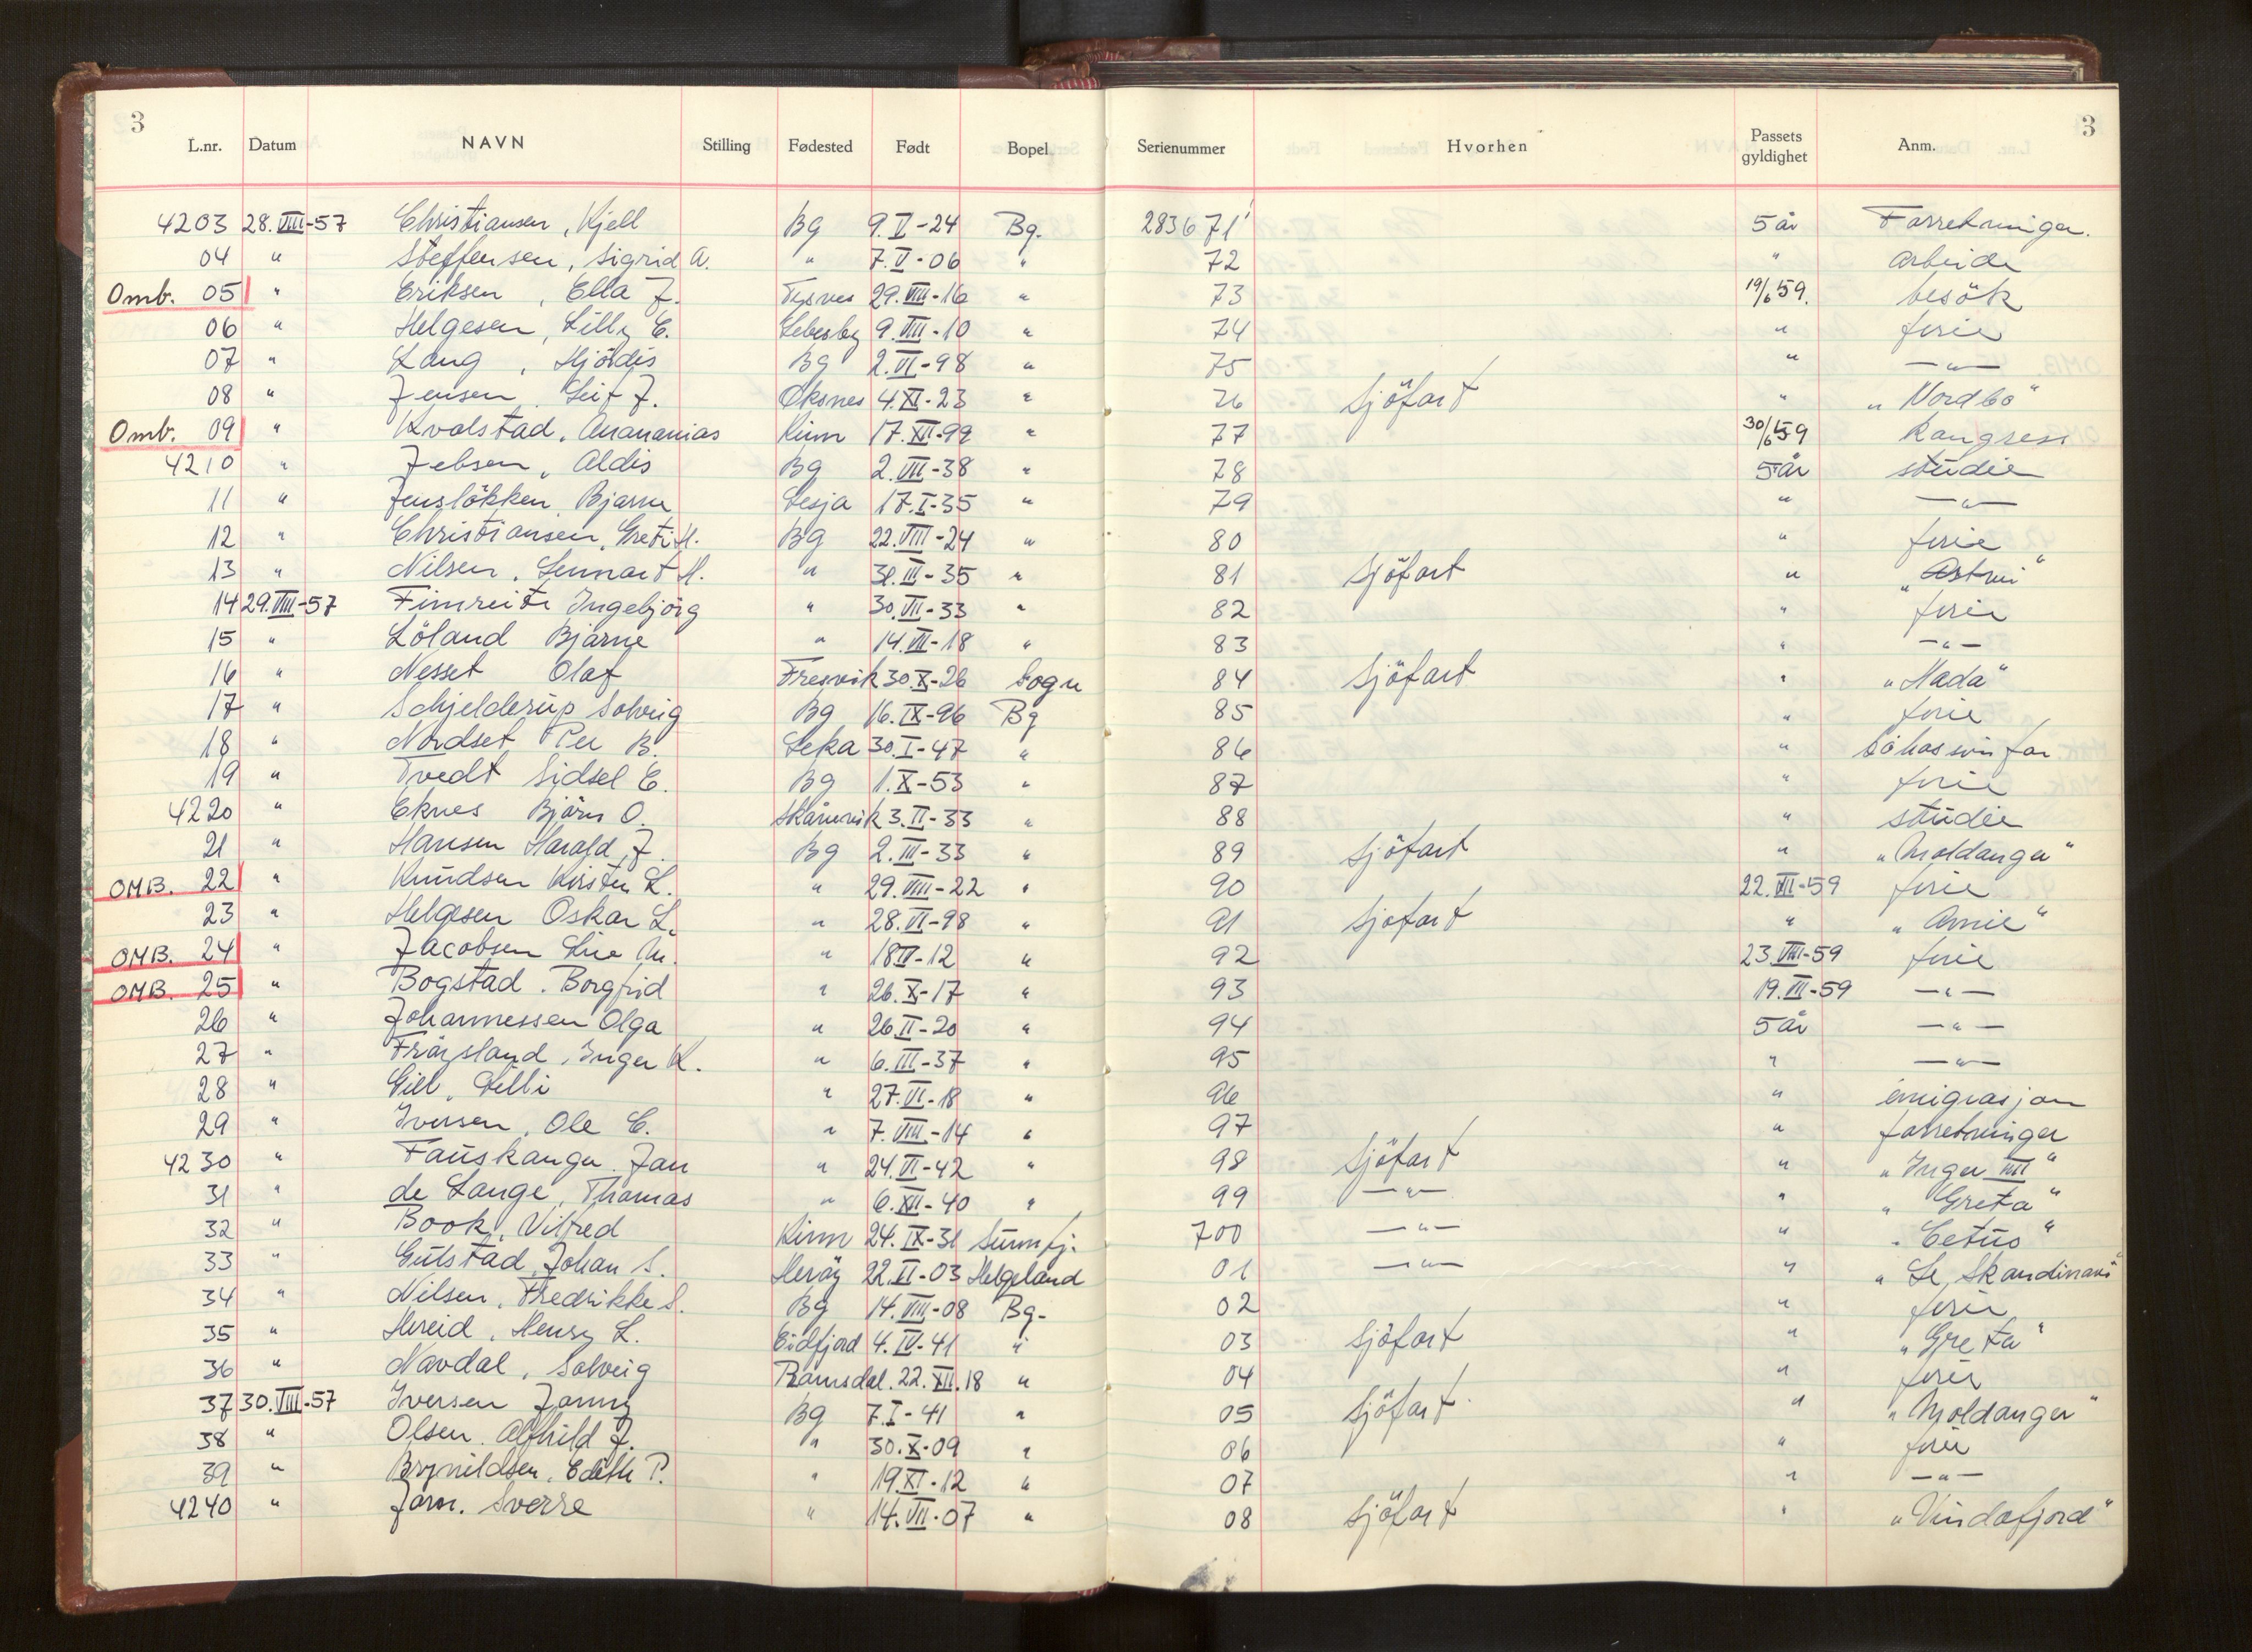 3 3
L.nr. Datum NAVN Stilling Fødested Født Bopel Serienummer Hvorhen Passets gyldighet Anm.
4203 28.VIII-57 Christiansen, Kjell Bg 9.V-24 Bg. 283671 5 år Forretninger.
04 " Steffensen, Sigrid A. " 7.V-06 " 72 " arbeide
Omb. 05 " Eriksen, Ella J. Tysnes 29.VIII-16 " 73 19/6 59. besök
06 " Helgesen, Lilly E. Lebesby 9.VIII-10 " 74 " ferie
07 " Lang, Hjördis Bg 2.VI-98 " 75 " —"—
08 " Jensen, Leif J. Öksnes 4.XI-23 " 76 Sjöfart " "Nordbo"
Omb. 09 " Kvalstad, Ananamias Kinn 17.XII-99 " 77 30/6 59 Kongress
4210 " Jebsen, Aldis Bg 2.VIII-38 " 78 5 år studie
11 " Jensløkken, Bjarne Lesja 17.I-35 " 79 " —"—
12 " Christiansen, Grete H. Bg 22.VIII-24 " 80 " ferie
13 " Nilsen, Lennart H. " 31.III-35 " 81 Sjöfart "
14 29.VIII-57 Fimreite Ingebjörg " 30.VII-33 " 82 " ferie
15 " Löland Bjarne " 14.VII-18 " 83 " —"—
16 " Nesset Olaf Fresvik 30.X-26 Sogn 84 Sjöfart " "Hada"
17 " Schjelderup Solveig Bg 16.IX-96 Bg 85 " ferie
18 " Nordset Per B. Leka 30.I-47 " 86 "
19 " Tvedt Sidsel E. Bg 1.X-53 " 87 " ferie
4220 " Eknes Björn O. Skånevik 3.II-33 " 88 " studie
21 " Hansen Harald J. Bg 2.III-33 " 89 Sjöfart " "Moldanger"
OMB. 22 " Knudsen Kirsten L. " 29.VIII-22 " 90 22.XII-59 ferie
23 " Helgesen Oskar L. " 28.VI-98 " 91 Sjöfart " "Annie"
OMB. 24 " Jacobsen Lise M. " 18 IV-12 " 92 23.VIII-59 ferie
OMB. 25 " Bogstad. Borgfrid " 26.X-17 " 93 19.III-59 —"—
26 " Johannessen Olga " 26.II-20 " 94 5 år —"—
27 " Fröysland, Inger K. " 6.III-37 " 95 " —"—
28 " Gill, Lilli " 27.VI-18 " 96 " emigrasjon
29 " Iversen, Ole E. " 7.VIII-14 " 97 " forretninger
4230 " Fauskanger. Jan " 24.VI-42 " 98 Sjöfart " "Inger
31 " de Lange, Thomas " 6.XII-40 " 99 —"— " "Greta"
32 " Book, Vilfred Kinn 24.IX-31 Sunnfj. 700 —"— " "Cetus"
33 " Gutstad, Johan S. Heröy 22.VI-03 Helgeland 01 —"— " "Le Skandinavi"
34 " Nilsen, Fredrikke S. Bg 14.VIII-08 Bg- 02 " ferie
35 " Hereid, Henry L. Eidfjord 4.IV-41 " 03 Sjöfart " "Greta"
36 " Navdal, Solveig Ramsdal. 22.XII.18 " 04 " ferie
37 30.VIII-57 Iversen Jonny Bg 7.I-41 " 05 Sjöfart " "Moldanger"
38 " Olsen. Alfhild J. " 30.X-09 " 06 " ferie
39 " Brynildsen, Edith P. " 19.XI-12 " 07 " —"—
4240 " Sverre " 14.VII-07 " 08 Sjöfart " "Vindafjord"